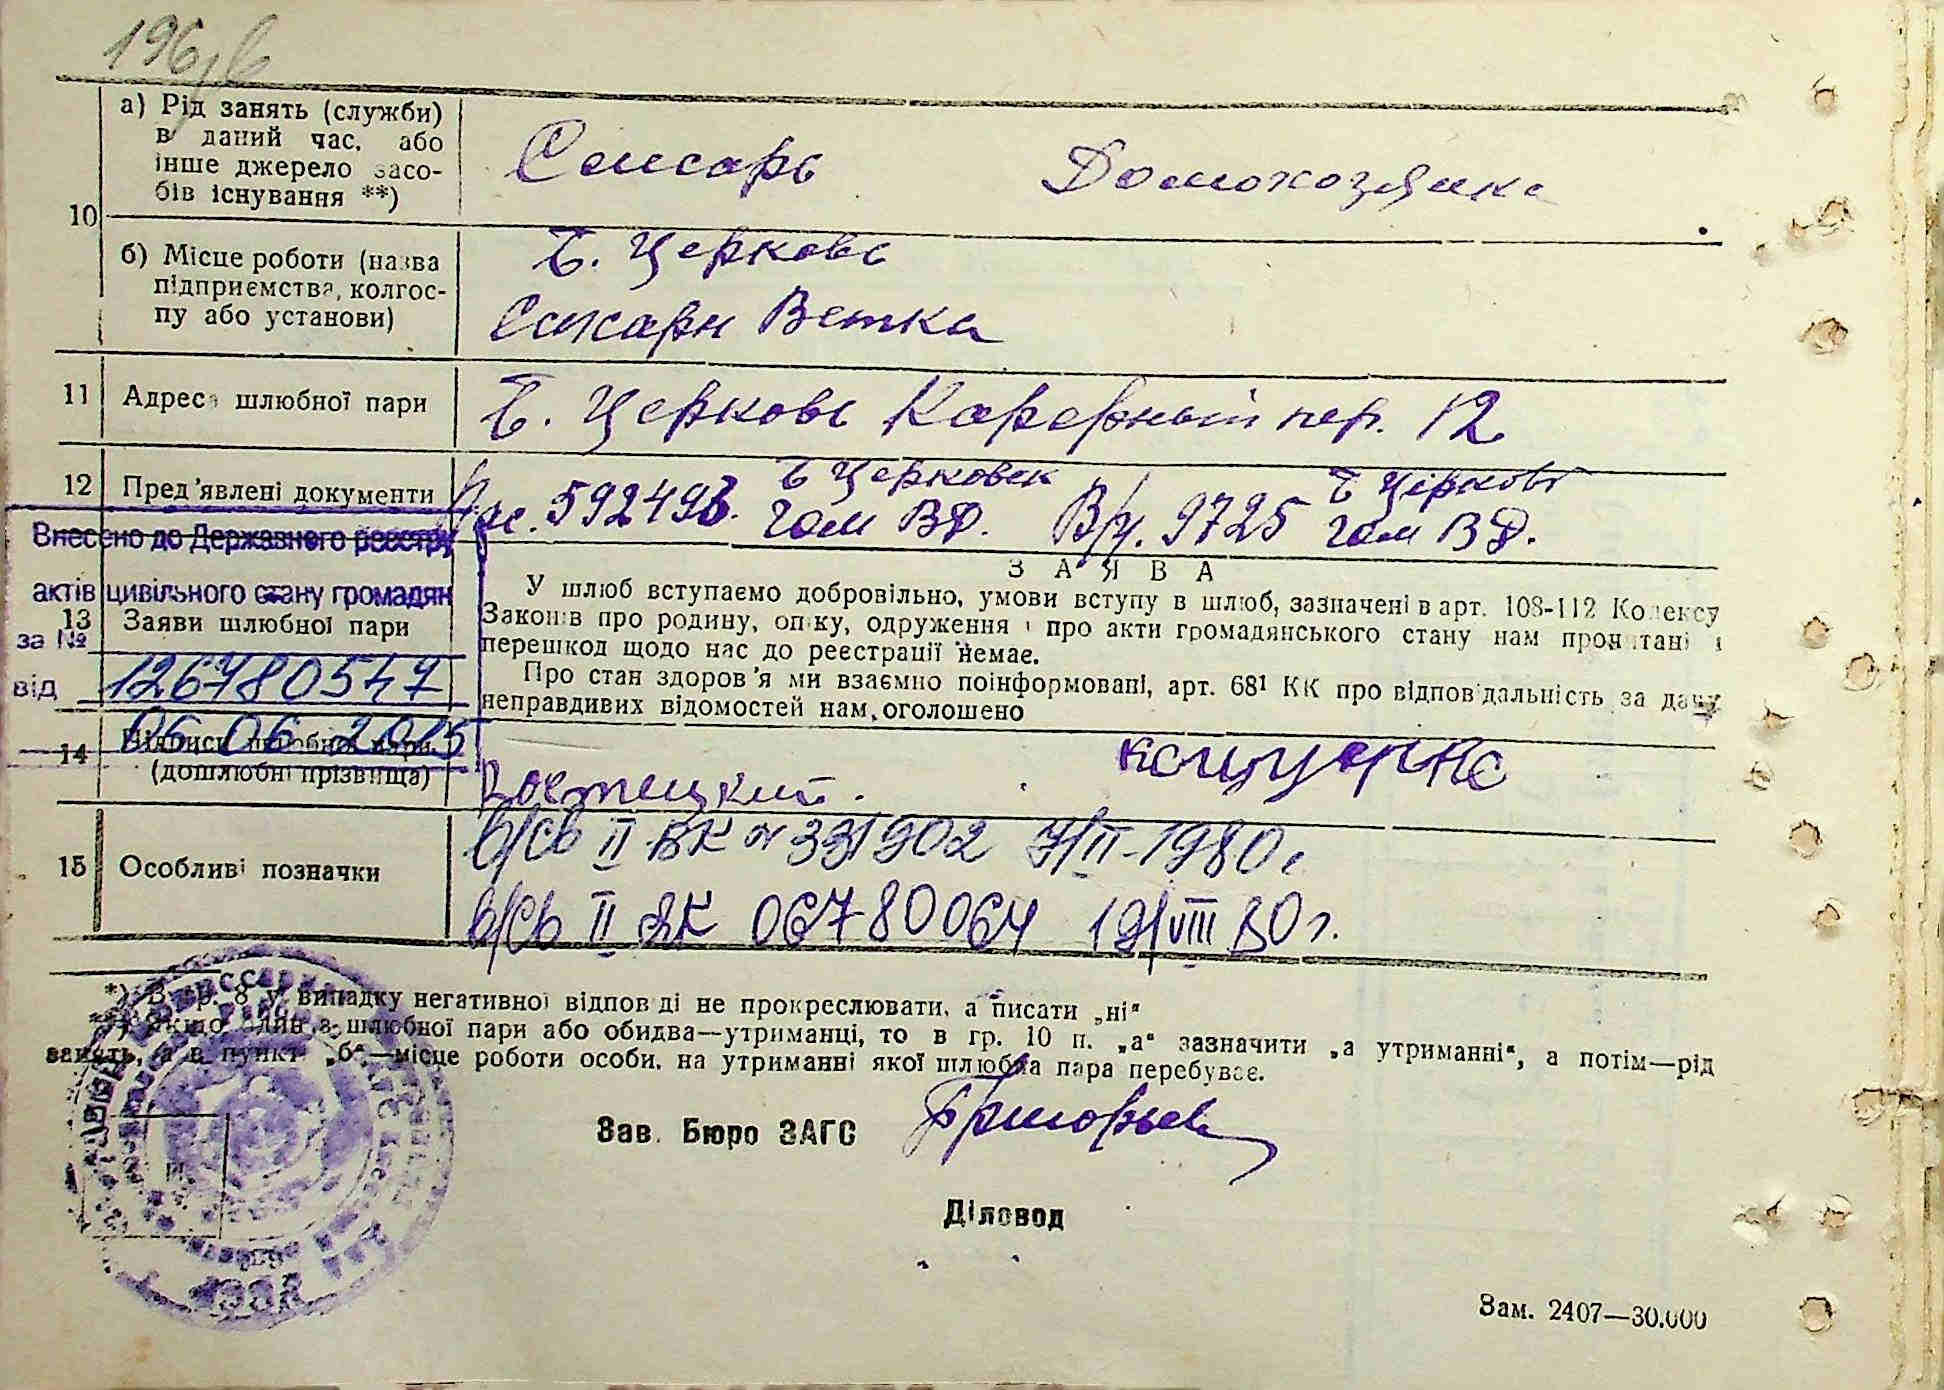 196
а) Рід занять (служби)
в даний час, або
інше джерело засо-
бів існування **)
Слесарь Домохозяика
10
б) Місце роботи (назва
підприємства, колгос-
пу або установи)
Б. Церковь
Сахарн Ветка
11 Адреса шлюбної пари
Б. Церковь Карерный пер. 12
12 Пред'явлені документи
Пас. 592493. Б Церковск гом ВД. В/ч. 9725 Б Церковь гом ВД.
Внесено до Державного реєстру
актів цивільного стану громадян
за №
126780547
від
06 06 2015
13 Заяви шлюбної пари
ЗАЯВА
У шлюб вступаємо добровільно, умови вступу в шлюб, зазначені в арт. 108-112 Кодексу
Законів про родину, опіку, одруження і про акти громадянського стану нам прочитані і
перешкод щодо нас до реєстрації немає.
Про стан здоров'я ми взаємно поінформовані, арт. 68¹ КК про відповідальність за дачу
неправдивих відомостей нам оголошено
14 Підписи шлюбної пари
(дошлюбні прізвища)
15 Особливі позначки
в/св II БК № 331902 7/II-1980г
в/св II 06780064 19/VIII 80г.
*) В гр. 8 у випадку негативної відповіді не прокреслювати, а писати „ні"
**) Якщо один з шлюбної пари або обидва—утриманці, то в гр. 10 п. „а" зазначити „а утриманні", а потім—рід
занять, а в пункті „б"—місце роботи особи, на утриманні якої шлюбна пара перебуває.
Зав. Бюро ЗАГС
Діловод
Зам. 2407—30.000